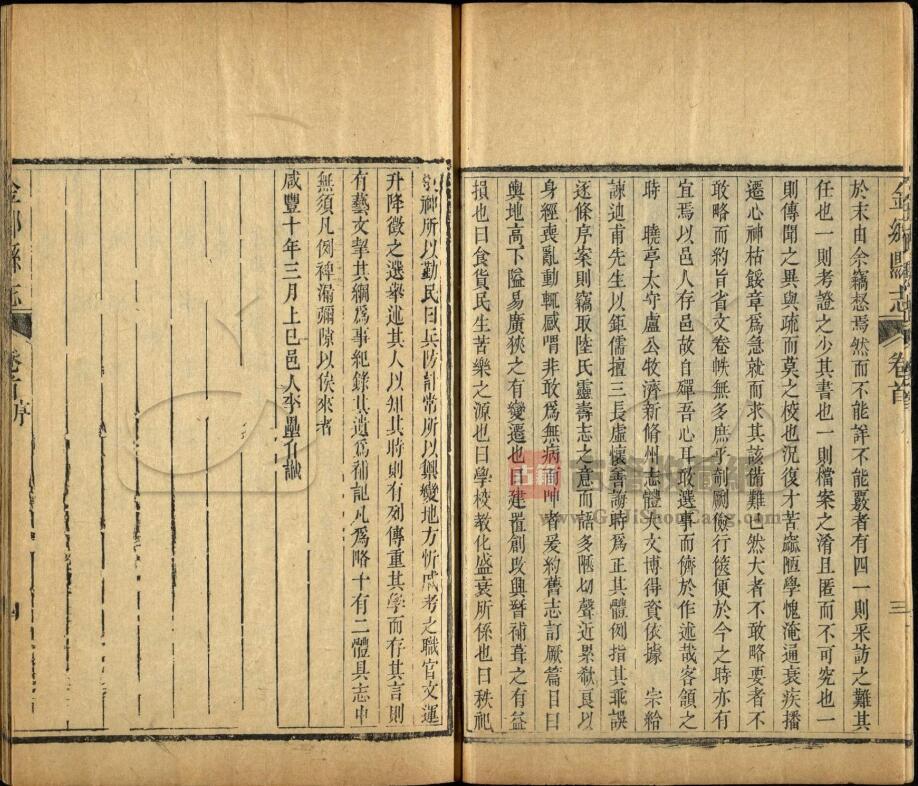 於末由余竊惄焉然而不能詳不能覈者有四一則采訪之難其
任也一則考證之少其書也一則檔案之淆且匿而不可究也一
則傳聞之異與疏而莫之校也況復才苦窳陋學愧淹通衰疾播
遷心神枯餒章為急就而求其該備難已然大者不敢略要者不
敢略而約旨省文卷帙無多庶乎剞劂儉行篋便於今之時亦有
宜焉以邑人存邑故自殫吾心耳敢選事而儕於作述哉客頷之
時 曉亭太守盧公牧濟新脩州志體大文博得資依據 宗給
諫迪甫先生以鉅儒擅三長虛懷善誨時為正其體例指其乖誤
迻條序案則竊取陸氏靈壽志之意而語多陋切聲近累欷良以
身經喪亂動輒感喟非敢為無病而呻者爰約舊志訂厥篇目曰
輿地高下隘易廣狹之有變遷也曰建置創改興替補葺之有益
損也曰食貨民生苦樂之源也曰學校教化盛衰所係也曰秩祀
敬神所以勤民曰兵防討常所以鎮變地方忻戚考之職官文運
升降徵之選舉述其人以知其時則有列傳重其學而存其言則
有藝文挈其綱為事紀錄其遺為補記凡為略十有二體具志中
無須凡例裨漏彌隙以俟來者
咸豐十年三月上巳邑人李壘自識
金鄉縣志 卷首 三
金鄉縣志 卷首 序 四
古籍
www.GuJiShouCang.com